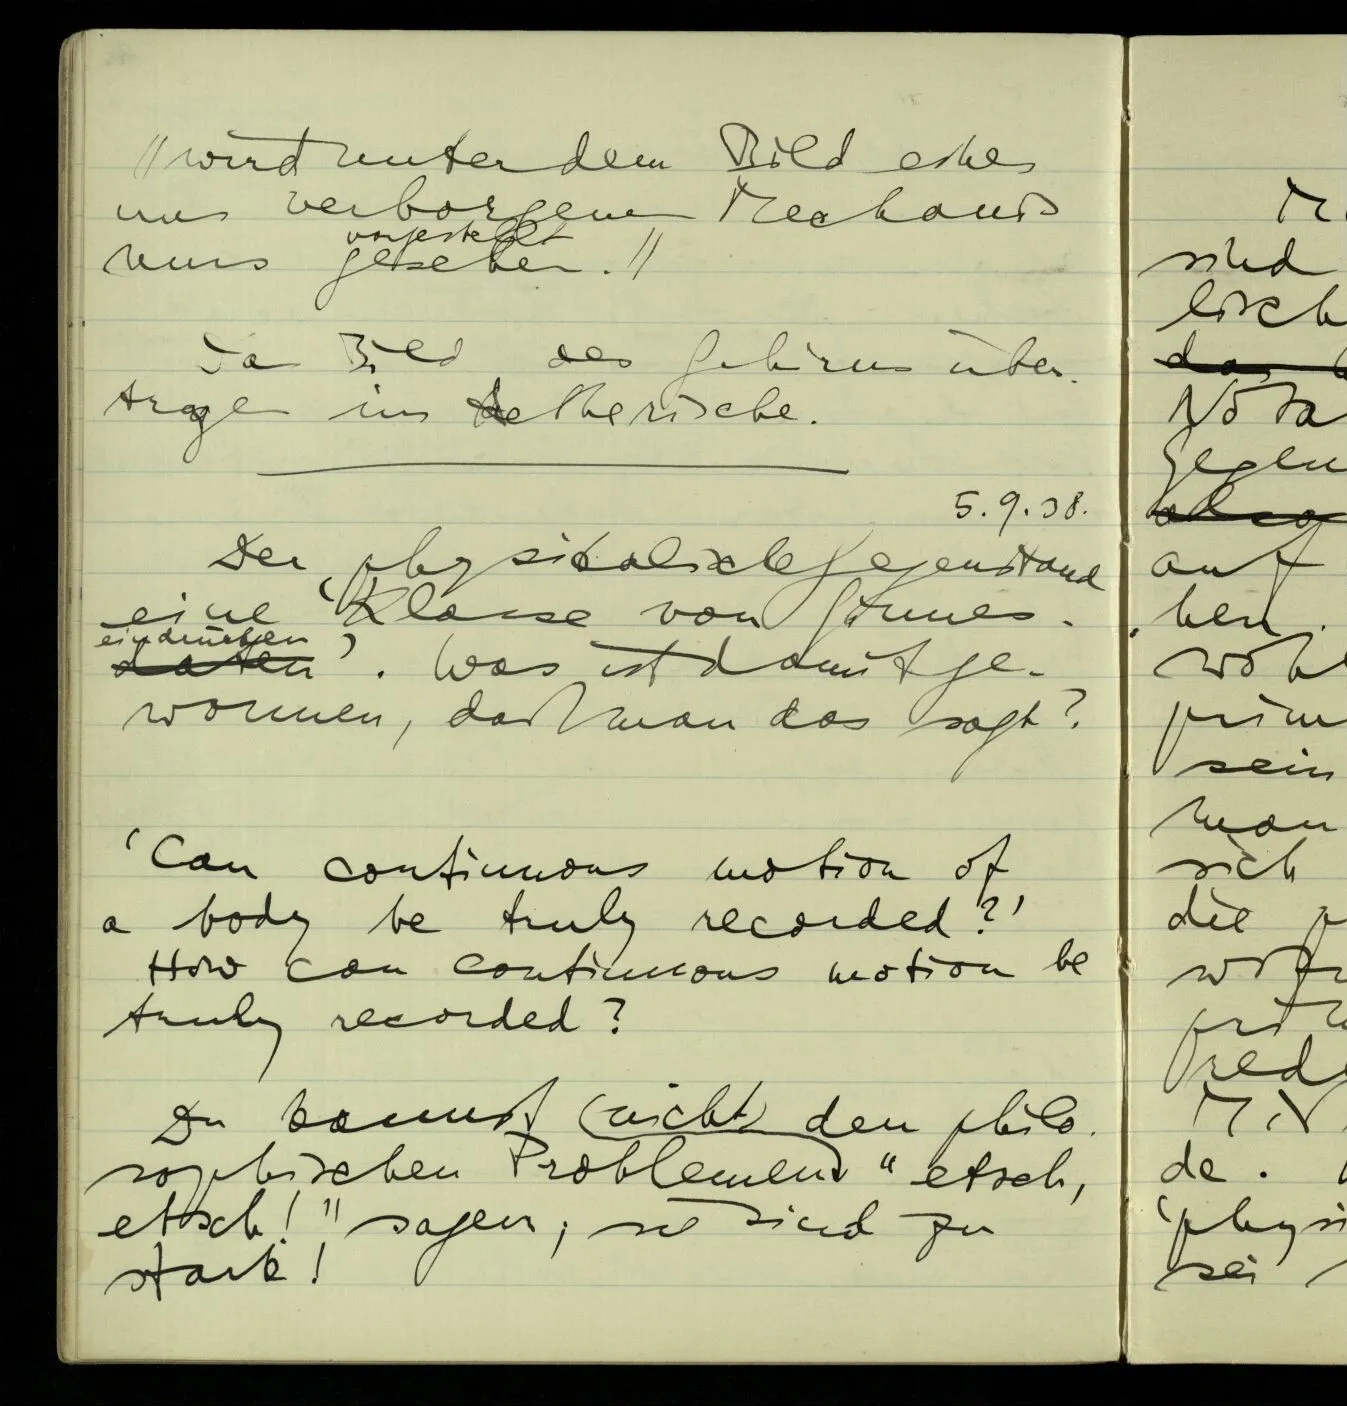 // wird unter dem Bild eines
uns verborgenen Mechanis
mus vorgestellt
gesehen. //
Das Bild des Gehirns über-
tragen ins Aetherische.
5.9.38.
Der physikalische Gegenstand
eine 'Klasse von Sinnes-
eindrücken
daten'. Was ist damit ge-
wonnen, daß man das sagt?
'Can continuous motion of
a body be truly recorded?'
How can continuous motion be
truly recorded?
Du kannst (nicht) den philo-
sophischen Problemen "etsch,
etsch!" sagen; sie sind zu
stark!
sind
auf
ben.
sein
man
sich
die
de.
'physi
sei